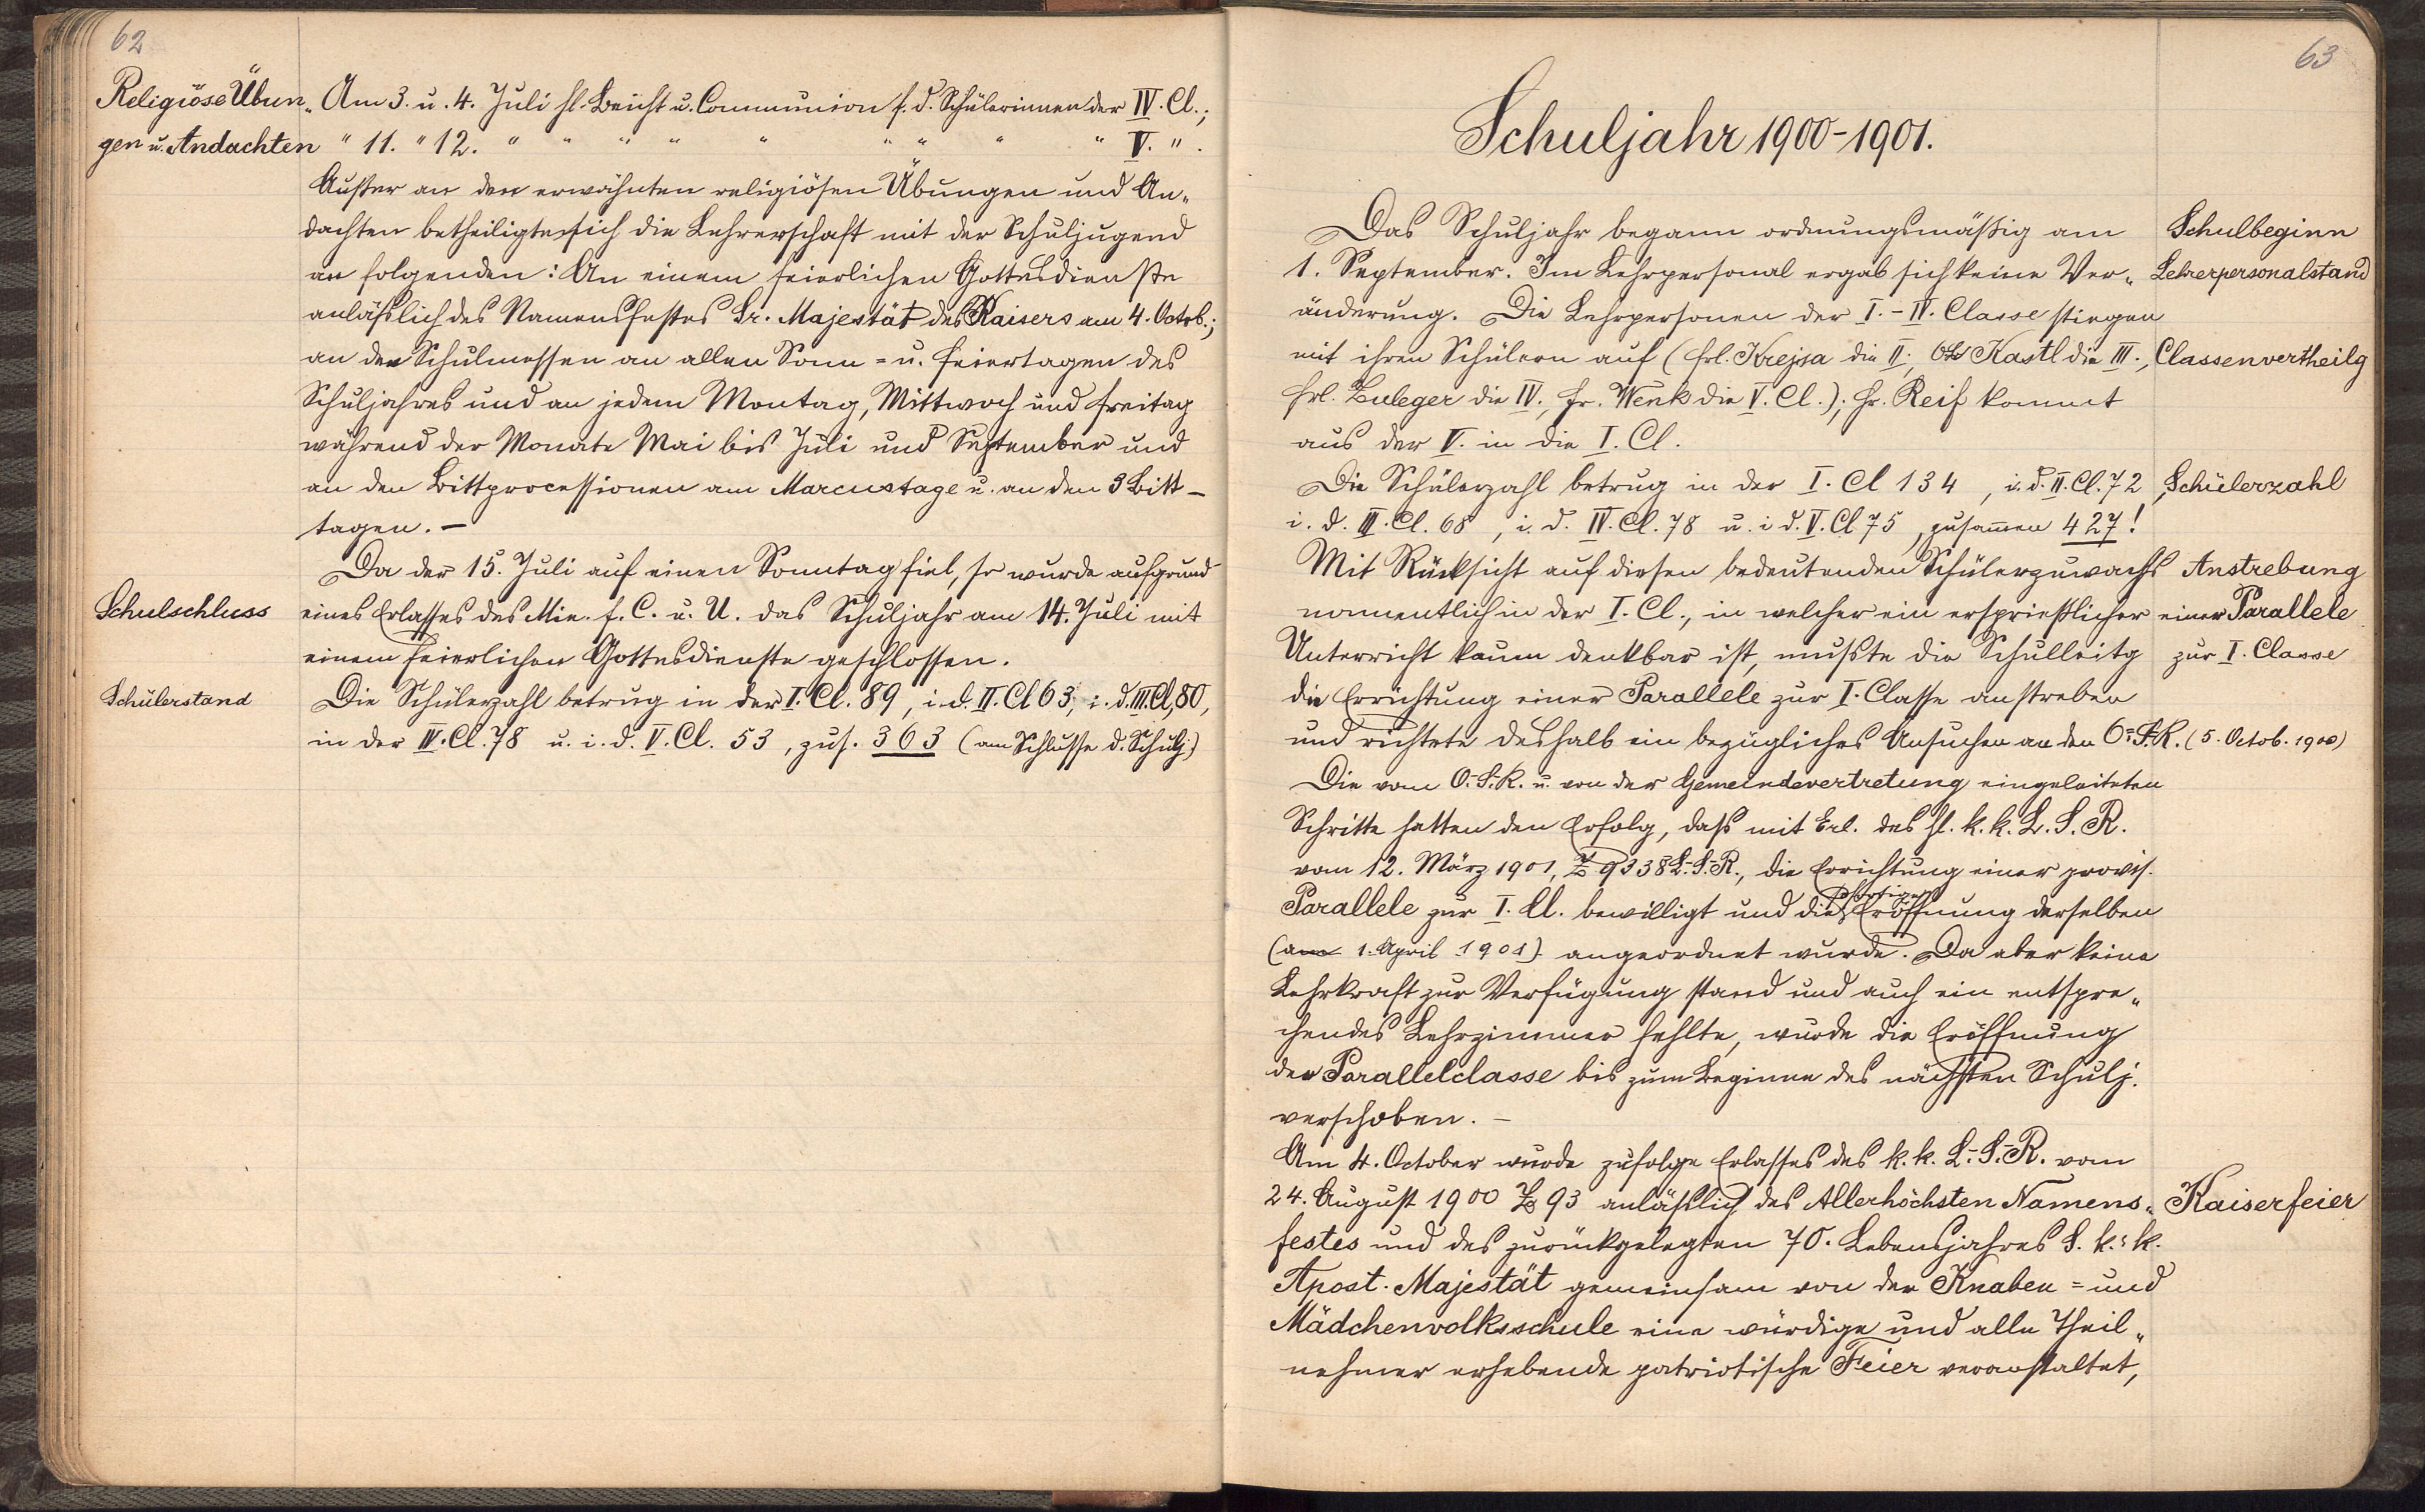 62
Religiöse Übun„
gen u. Andachten
Am 3. u. 4. Juli hl. Beicht u. Communion f. d. Schülerinnen der IV. Cl.;
" 11. " 12. " " " " " " " " " V. ".
Außer an den erwähnten religiösen Übungen und An„
dachten betheiligte sich die Lehrerschaft mit der Schuljugend
an folgenden: An einem feierlichen Gottesdienste
anläßlich des Namensfestes Sr. Majestät des Kaisers am 4. Octob.;
an den Schulmessen an allen Sonn= u. Feiertagen des
Schuljahres und an jedem Montag, Mittwoch und Freitag
während der Monate Mai bis Juli und September und
an den Bittprocessionen am Marcustage u. an den 3 Bitt-
tagen. –
Da der 15. Juli auf einen Sonntag fiel, so wurde aufgrund
Schulschluss
eines Erlasses des Min. f. C. u. U. das Schuljahr am 14. Juli mit
einem feierlichen Gottesdienste geschlossen.
Schülerstand
Die Schülerzahl betrug in der I. Cl. 89, i. d. II. Cl 63, i. d. III. Cl, 80,
in der IV. Cl. 78 u. i. d. V. Cl. 53, zus. 363 (am Schlusse d. Schulj.)
63
Schuljahr 1900-1901.
Das Schuljahr begann ordnungsmäßig am
Schulbeginn
1. September. Im Lehrpersonal ergab sich keine Ver„
Lehrerpersonalstand
änderung. Die Lehrpersonen der I. - IV. Classe stiegen
mit ihren Schülern auf (Frl. Krejsa die II., Kastl die III.,
Classenvertheilg
Frl. Zuleger die IV., Hr. Wenk die V. Cl.); Hr. Reif kommt
aus der V. in die I. Cl.
Die Schülerzahl betrug in der I. Cl 134, i. d. II. Cl. 72,
Schülerzahl
i. d. III. Cl. 68, i. d. IV. Cl. 78 u. i d. V. Cl 75, zusammen 427!
Mit Rücksicht auf diesen bedeutenden Schülerzuwachs
Anstrebung
namentlich in der I. Cl., in welcher ein ersprießlicher
einer Parallele
Unterricht kaum denkbar ist, mußte die Schulleitg
zur I. Classe
die Errichtung einer Parallele zur I. Classe anstreben
und richtete deshalb ein bezügliches Ansuchen an den O.=S.-R. (5. Octob. 1900)
Die vom O.-S.-R. u. von der Gemeindevertretung eingeleiteten
Schritte hatten den Erfolg, daß mit Erl. des hl. k. k. L. S. R.
vom 12. März 1901, Z 9338 L.-S.-R., die Errichtung einer provis.
Parallele zur I. Cl. bewilligt und die sofortige Eröffnung derselben
(am 1. April 1901) angeordnet wurde. Da aber keine
Lehrkraft zur Verfügung stand und auch ein entspre„
chendes Lehrzimmer fehlte, wurde die Eröffnung
der Parallelclasse bis zum Beginne des nächsten Schulj.
verschoben. –
Am 4. October wurde zufolge Erlasses des k. k. L.-S.-R. vom
24. August 1900 Z 93 anläßlich des Allerhöchsten Namens„
Kaiserfeier
festes und des zurückgelegten 70. Lebensjahres S. k. k.
Apost. Majestät gemeinsam von der Knaben= und
Mädchenvolksschule eine würdige und alle Theil„
nehmer erhebende patriotische Feier veranstaltet,